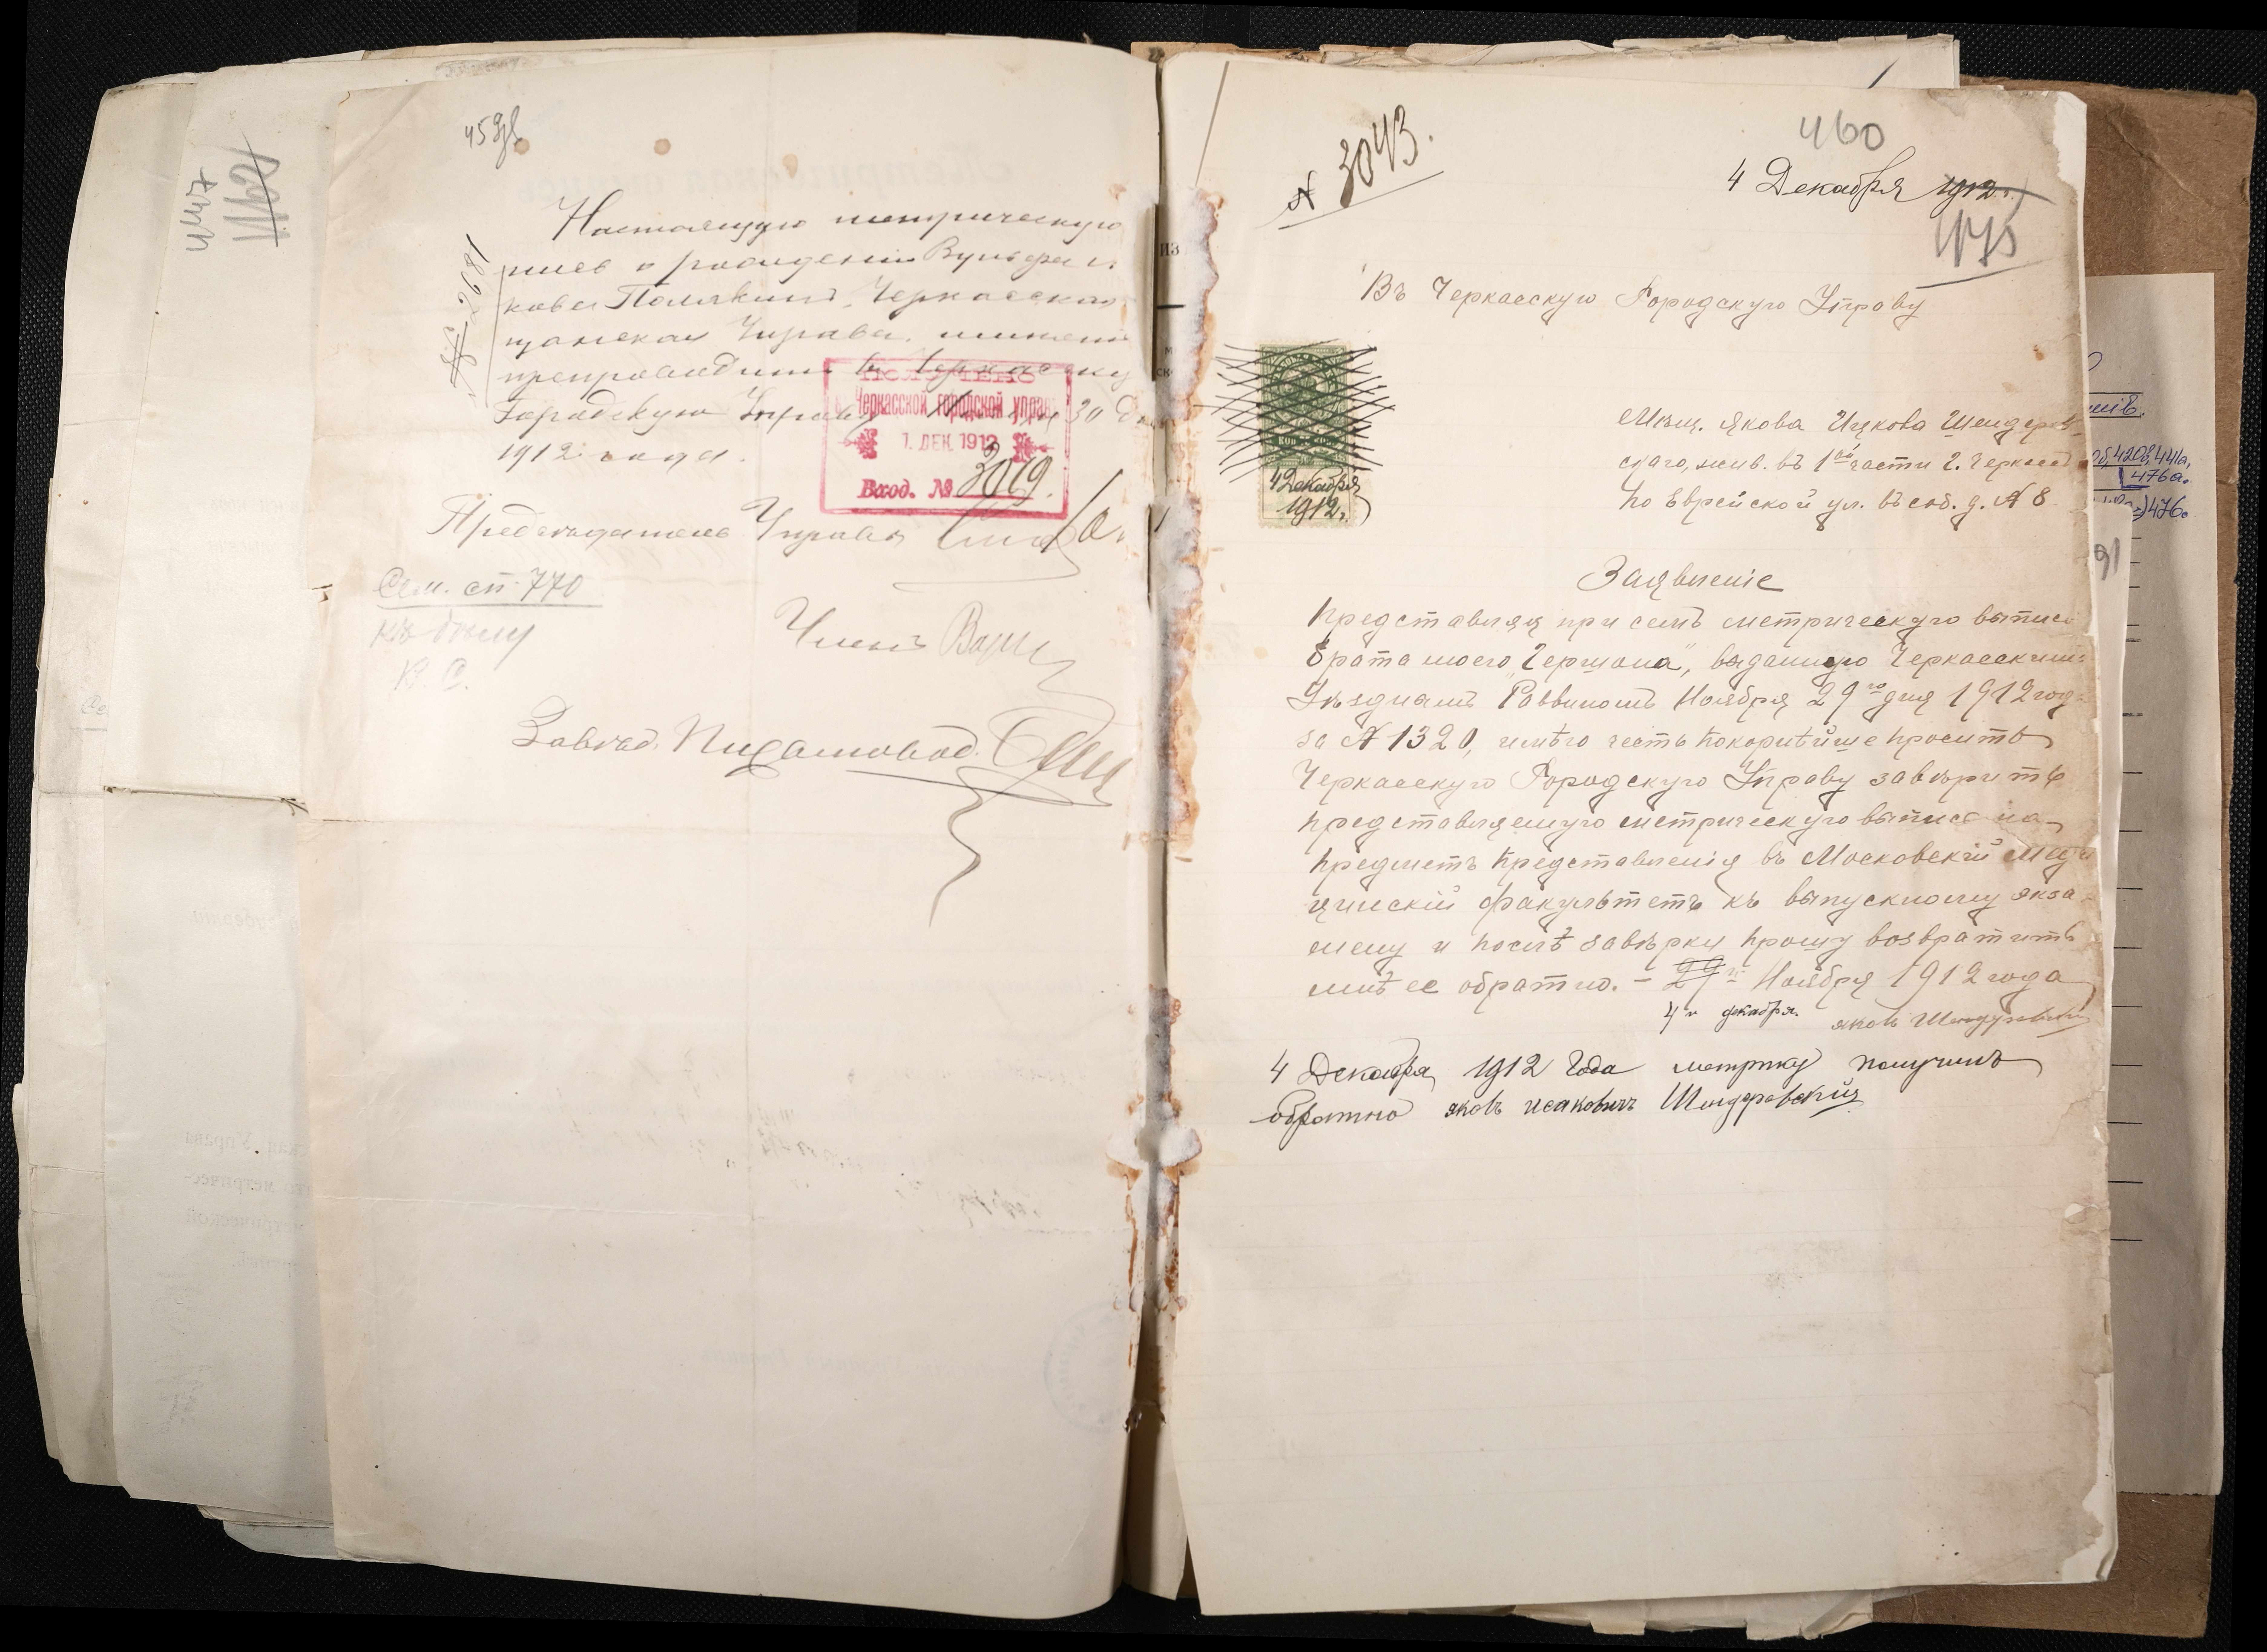 459об
Настоящую метрическую
пись о рождении Вульфа
кова Полякина, Черкасская
щанская Управа,
препровождает въ Черкасскую
Городскую Управу 30
1912 года.
№ 2681
ПОЛУЧЕНО
Черкасской городской управ
1. ДЕК. 1912
Вход. № 3019.
Председатель Управы
Сем. сп. 770
къ делу
Членъ
Завѣд. Письмовод.
447
№ 3043.
460
4 Декабря 1912 г.
475
Въ Черкасскую Городскую Управу
4 Декабря
1912 г.
Мѣщ. Якова Ицкова Шендеров-
скаго, жив. въ 1ой части г. Черкассъ
по Еврейской ул. въ соб. д. № 8
Заявленіе
Представляя при семъ метрическую выпись
брата моего "Гершона", выданную Черкасскимъ
Уѣзднымъ Раввиномъ Ноября 29го дня 1912 год
за № 1320, имѣю честь покорнѣйше просить
Черкасскую Городскую Управу завѣрить
представляемую метрическую выпись на
предметъ представленія въ Московскій Меди
цинскій факультетъ къ выпускному экза-
мену и послѣ завѣрки прошу возвратить
мнѣ ее обратно. – 29го Ноября 1912 года
4го декабря.
4 Декабря 1912 года метрику получилъ
обратно яковъ исаковичъ Шендеровскій
420в, 441а,
476а.
476